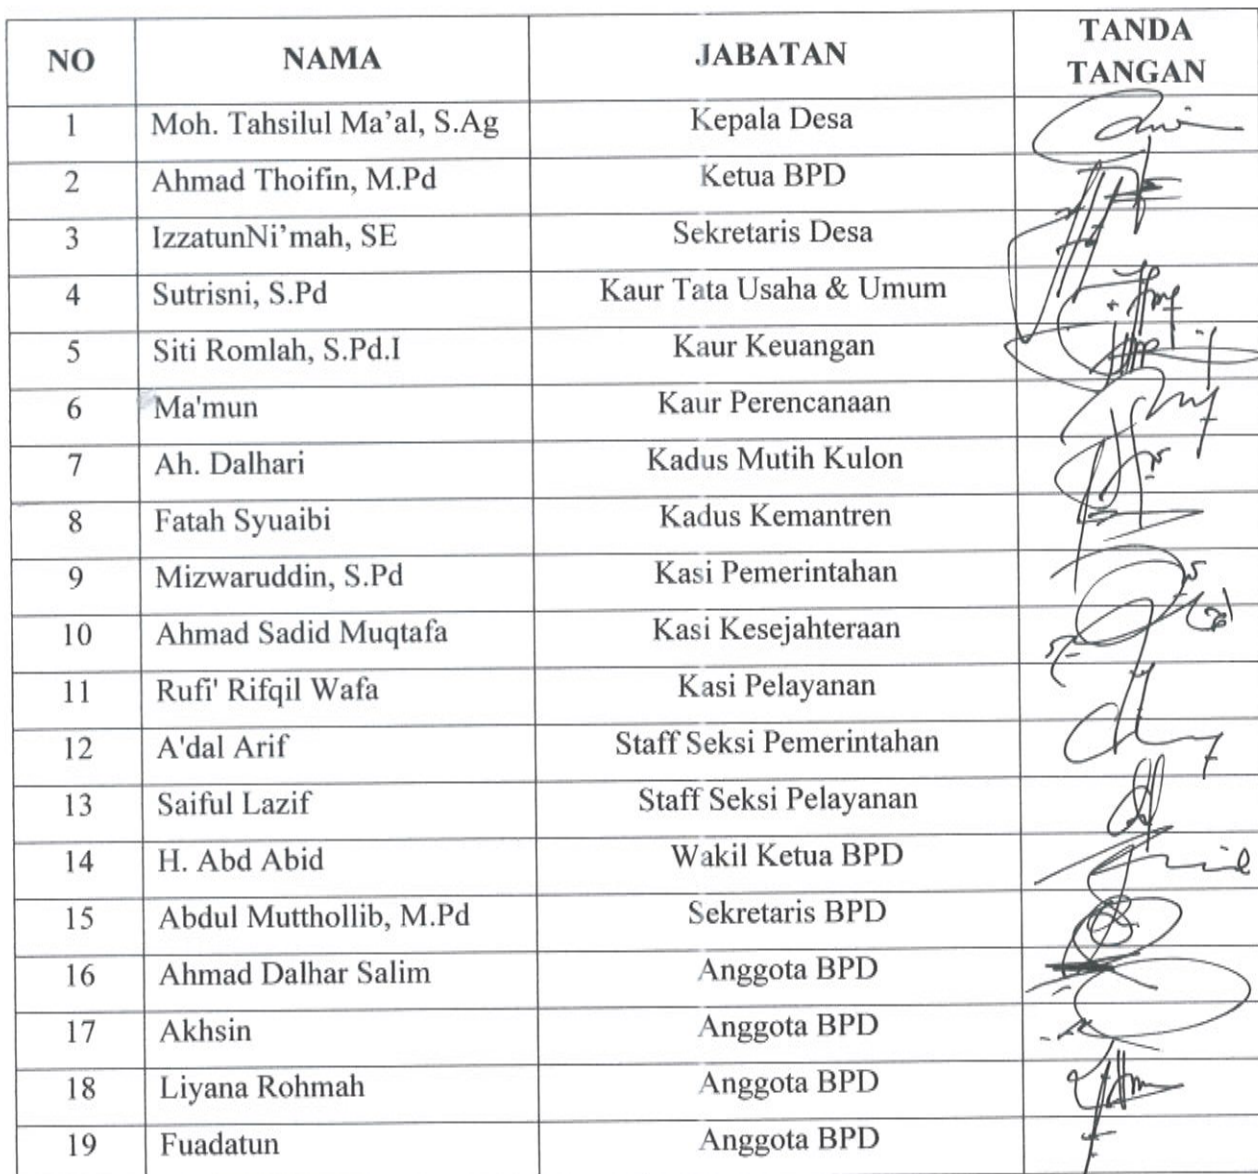 NO NAMA JABATAN TANDA TANGAN
1 Moh. Tahsilul Ma’al, S.Ag Kepala Desa
2 Ahmad Thoifin, M.Pd Ketua BPD
3 IzzatunNi’mah, SE Sekretaris Desa
4 Sutrisni, S.Pd Kaur Tata Usaha & Umum
5 Siti Romlah, S.Pd.I Kaur Keuangan
6 Ma'mun Kaur Perencanaan
7 Ah. Dalhari Kadus Mutih Kulon
8 Fatah Syuaibi Kadus Kemantren
9 Mizwaruddin, S.Pd Kasi Pemerintahan
10 Ahmad Sadid Muqtafa Kasi Kesejahteraan
11 Rufi' Rifqil Wafa Kasi Pelayanan
12 A'dal Arif Staff Seksi Pemerintahan
13 Saiful Lazif Staff Seksi Pelayanan
14 H. Abd Abid Wakil Ketua BPD
15 Abdul Mutthollib, M.Pd Sekretaris BPD
16 Ahmad Dalhar Salim Anggota BPD
17 Akhsin Anggota BPD
18 Liyana Rohmah Anggota BPD
19 Fuadatun Anggota BPD